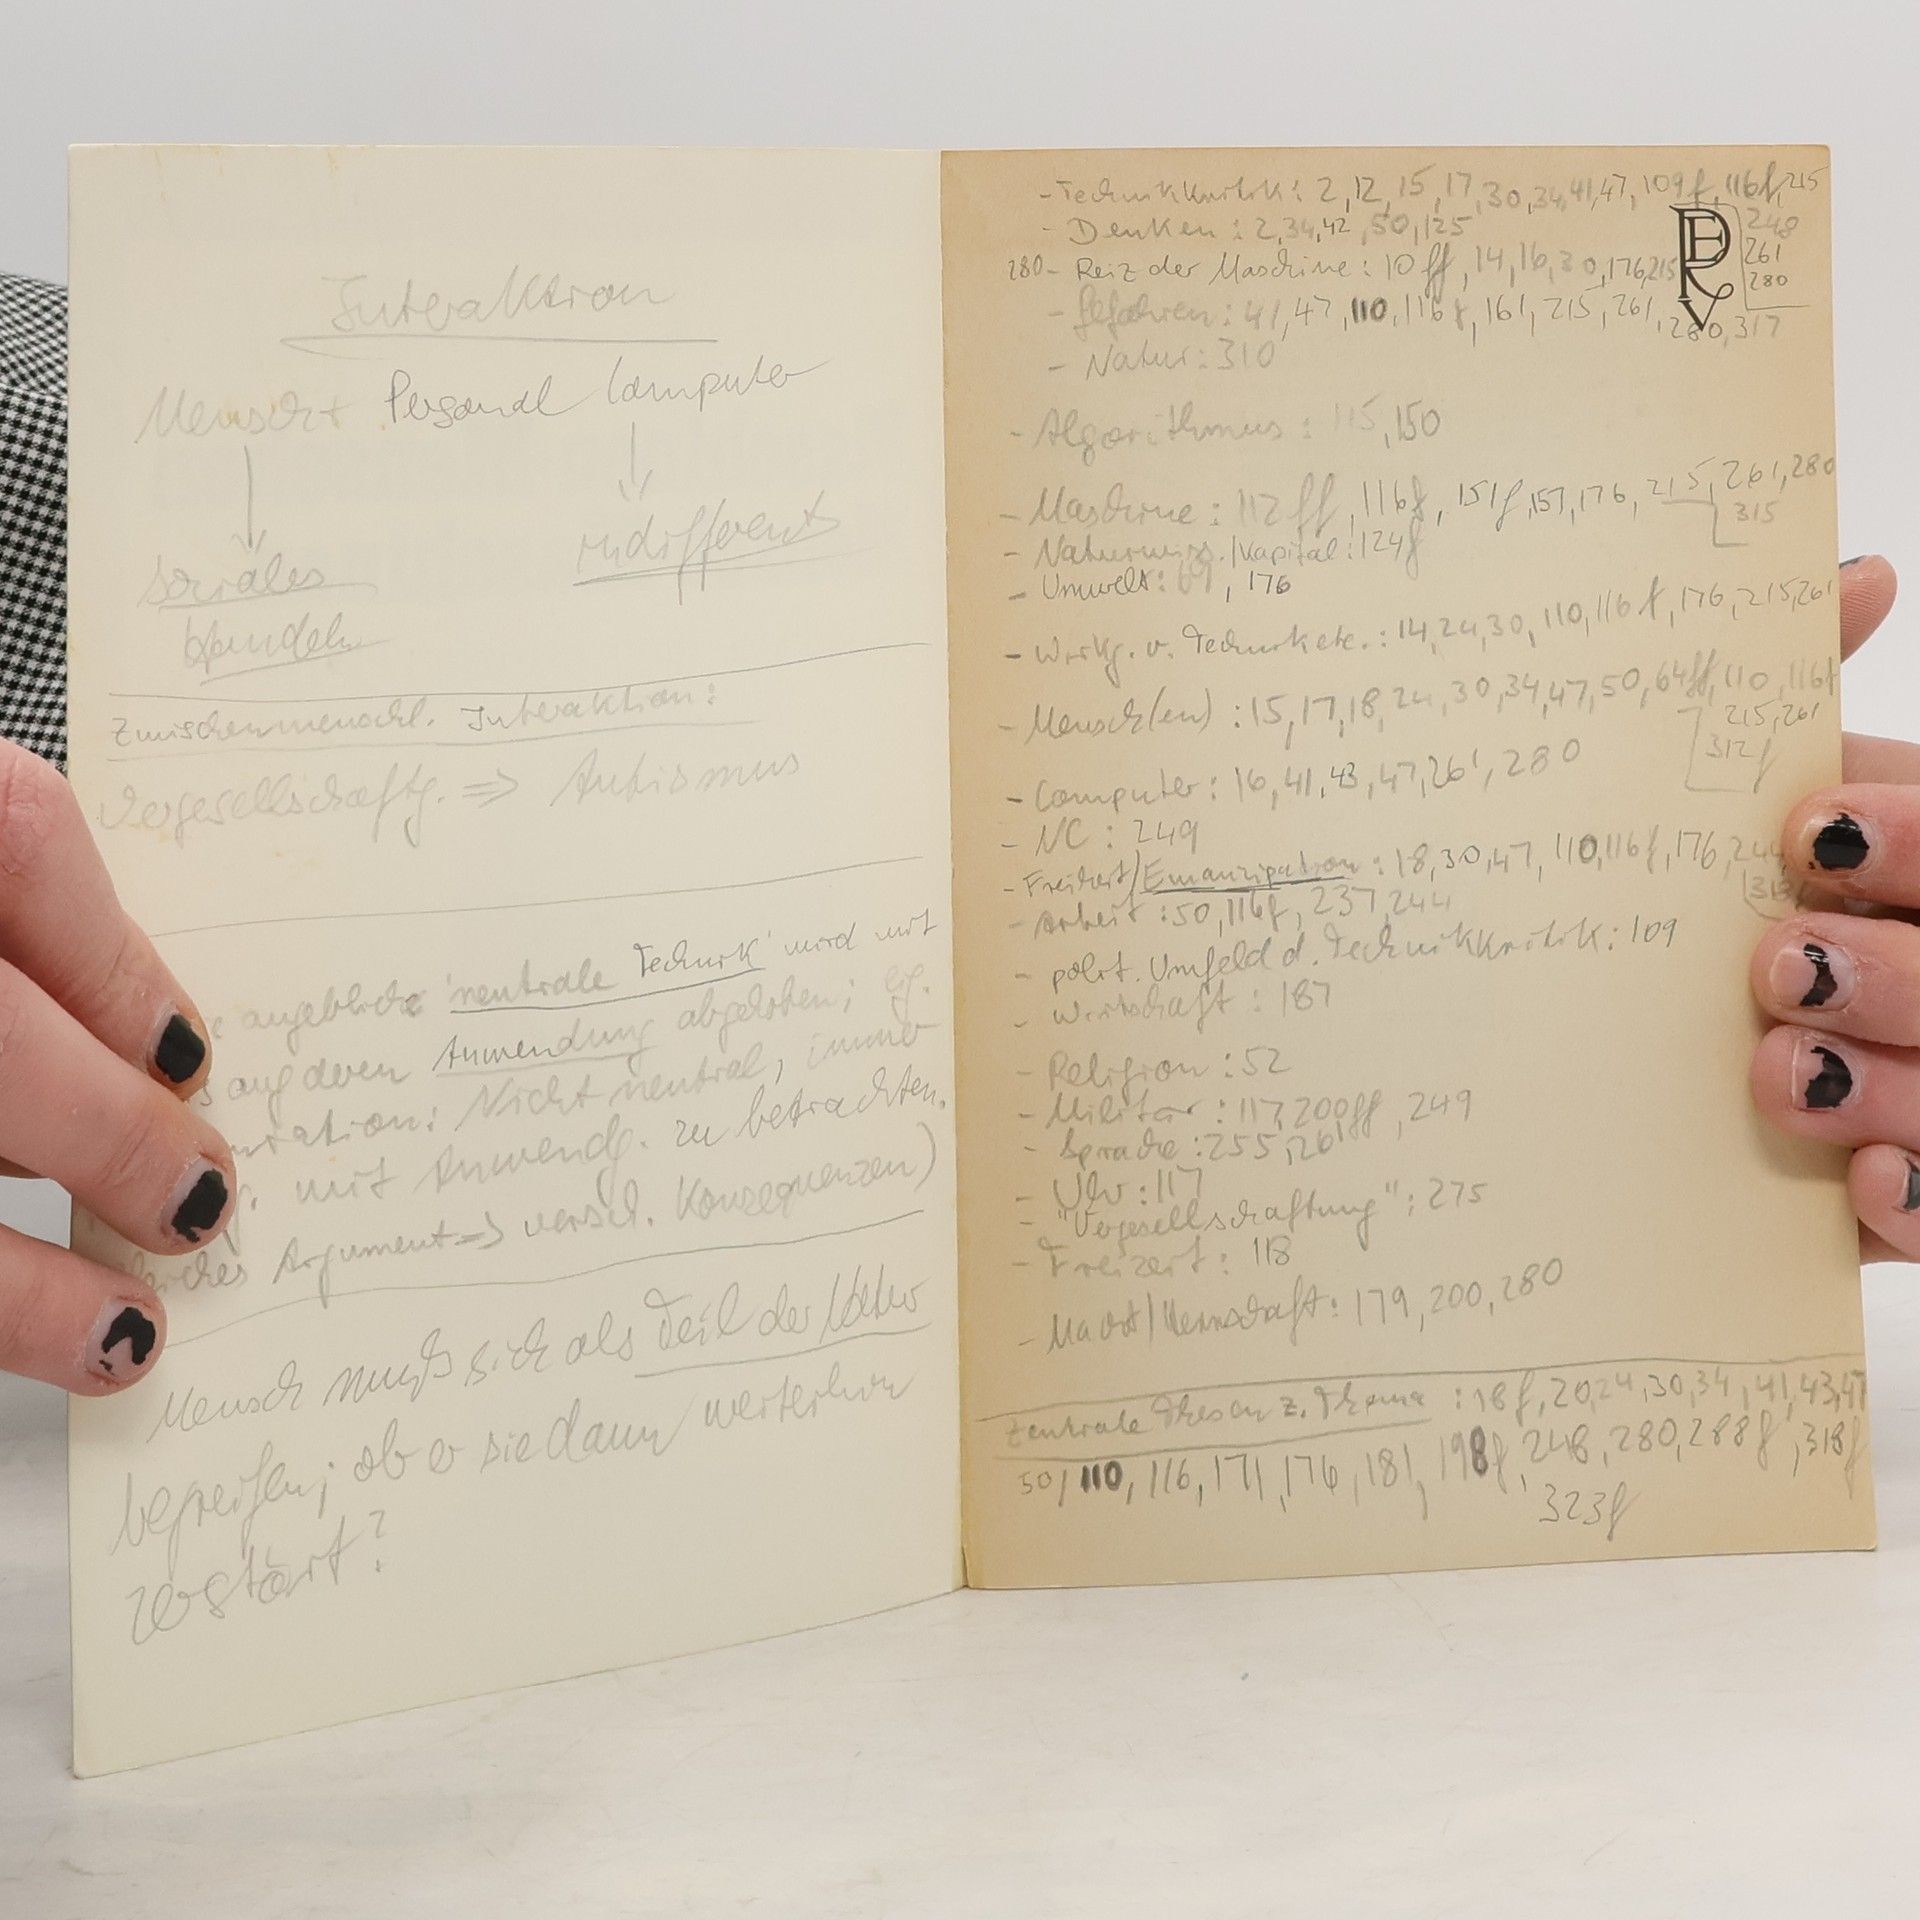 Interaktion
Mensch + Personal Computer
soziales
Handeln
indifferent
Zwischenmenschl. Interaktion:
Vergesellschaftg. => Autismus
angebliche 'neutrale Technik' wird mit
auf deren Anwendung abgehoben; eig.
Nicht neutral, immer
mit Anwendg. zu betrachten.
Argument => versch. Konsequenzen)
Mensch muß sich als Teil der Natur
begreifen; ob er sie dann weiterhin
zerstört?
- Technikkritik: 2, 12, 15, 17, 30, 34, 41, 47, 109f, 116f, 215
248
261
280
- Denken: 2, 34, 42, 50, 125
280 - Reiz der Maschine: 10ff, 14, 16, 30, 176, 215
PERV
- Gefahren: 41, 47, 110, 116f, 161, 215, 261, 280, 317
- Natur: 310
- Algorithmus: 115, 150
- Maschine: 112ff, 116f, 151f, 157, 176, 215, 261, 280
315
- Naturwiss./Kapital: 124f
- Umwelt: 176
- Wirkg. v. Technik etc.: 14, 24, 30, 110, 116f, 176, 215, 261
- Mensch(en): 15, 17, 18, 24, 30, 34, 47, 50, 64ff, 110, 116f
215, 261
312f
- Computer: 16, 41, 43, 47, 261, 280
- NC: 249
- Freiheit/Emanzipation: 18, 30, 47, 110, 116f, 176, 244
313f
- Arbeit: 50, 116f, 237, 244
- polit. Umfeld d. Technikkritik: 109
- Wirtschaft: 187
- Religion: 52
- Militär: 117, 200ff, 249
- Sprache: 255, 261
- Ulv: 117
- "Vergesellschaftung": 275
- Freizeit: 118
- Macht/Herrschaft: 179, 200, 280
Zentrale Thesen z. Thema: 18f, 20, 24, 30, 34, 41, 43, 47
50, 110, 116, 171, 176, 181, 198f, 248, 280, 288f, 318f
323f